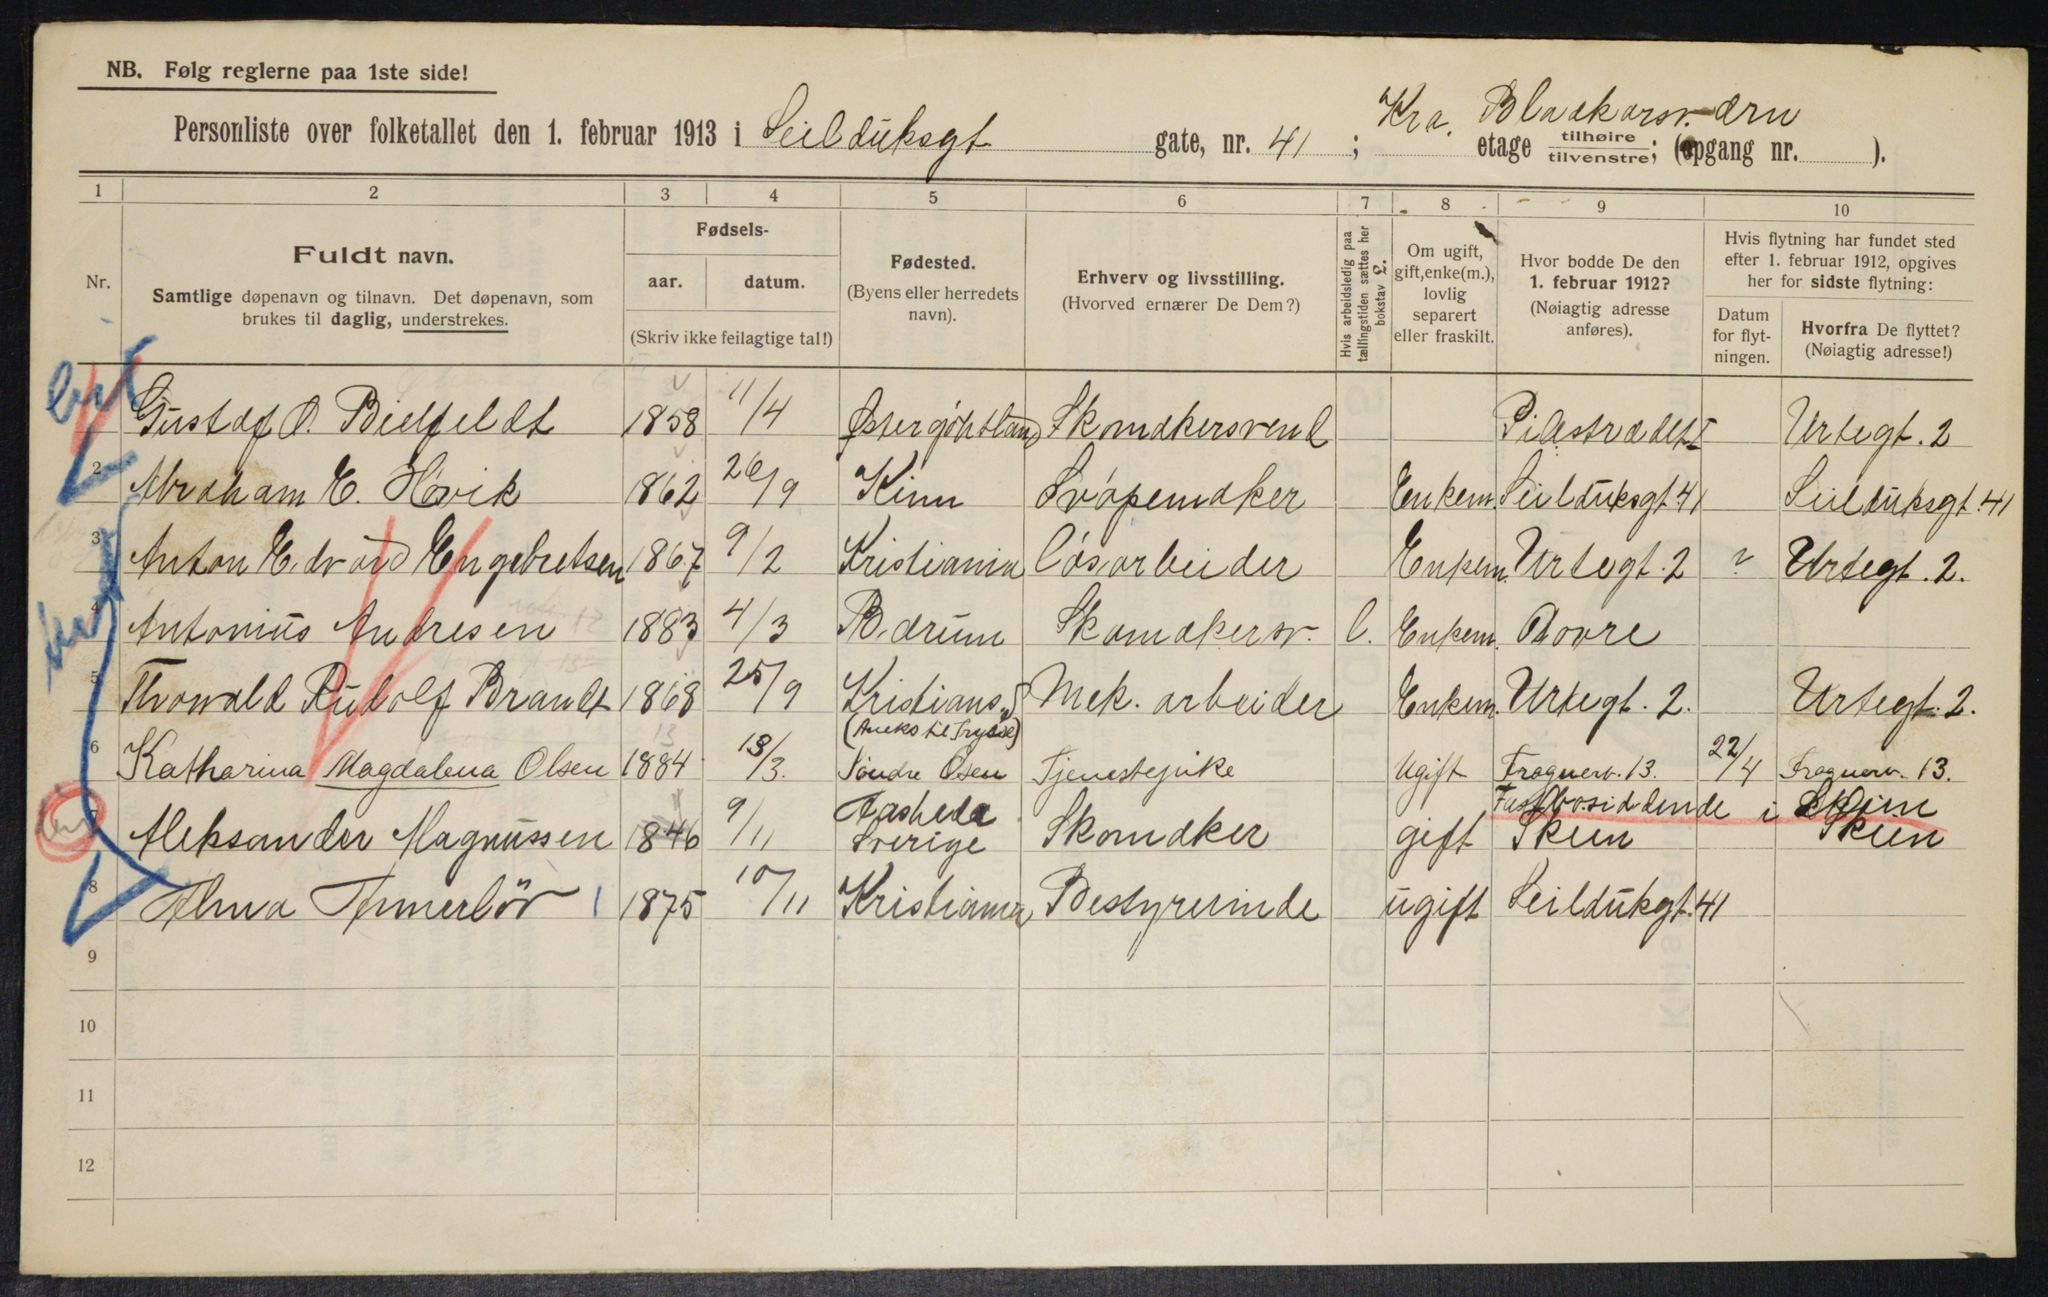 NB. Følg reglerne paa 1ste side!
Kra.
Personliste over folketallet den 1. februar 1913 i Seilduksgt gate, nr. 41; etage tilhøire tilvenstre; (opgang nr. ).
1 2 3 4 5 6 7 8 9 10
Nr.
Fuldt navn.
Samtlige døpenavn og tilnavn. Det døpenavn, som
brukes til daglig, understrekes.
Fødsels-
aar. datum.
(Skriv ikke feilagtige tal!)
Fødested.
(Byens eller herredets
navn).
Erhverv og livsstilling.
(Hvorved ernærer De Dem?)
Hvis arbeidsledig paa
tællingstiden sættes her
bokstav L.
Om ugift,
gift, enke(m.),
lovlig
separert
eller fraskilt.
Hvor bodde De den
1. februar 1912?
(Nøiagtig adresse
anføres).
Hvis flytning har fundet sted
efter 1. februar 1912, opgives
her for sidste flytning:
Datum
for flyt-
ningen.
Hvorfra De flyttet?
(Nøiagtig adresse!)
Gustaf O. Bielfeldt 1858 11/4 Østergöhtland Skomakersvend Pilestrædet Urtegt. 2
2 Abraham E. Hovik 1862 26/9 Kinn Svøpemaker Enkem. Seilduksgt. 41 Seilduksgt. 41
3 Anton Edvard Engebretsen 1867 9/2 Kristiania Løsarbeider Enkem. Urtegt. 2 ? Urtegt. 2.
4 Antonius Andresen 1883 4/3 Bærum Skomakersv. l. Enkem. Dovre
5 Thorvald Rudolf Brandt 1868 25/9 Kristians Mek. arbeider Enkem. Urtegt. 2. Urtegt. 2.
6 Katharina Magdalena Olsen 1884 13/3. Søndre Osen Tjenestepike Ugift Frognerv. 13. 22/4 Frognerv. 13.
Fastbosiddende i Skien
7 Aleksander Magnussen 1846 9/11 Sverige Skomaker gift Skien Skien
8 Alma Ammerlöv 1875 10/11 Kristiania Bestyrerinde ugift Seildukgt. 41
9
10
11
12